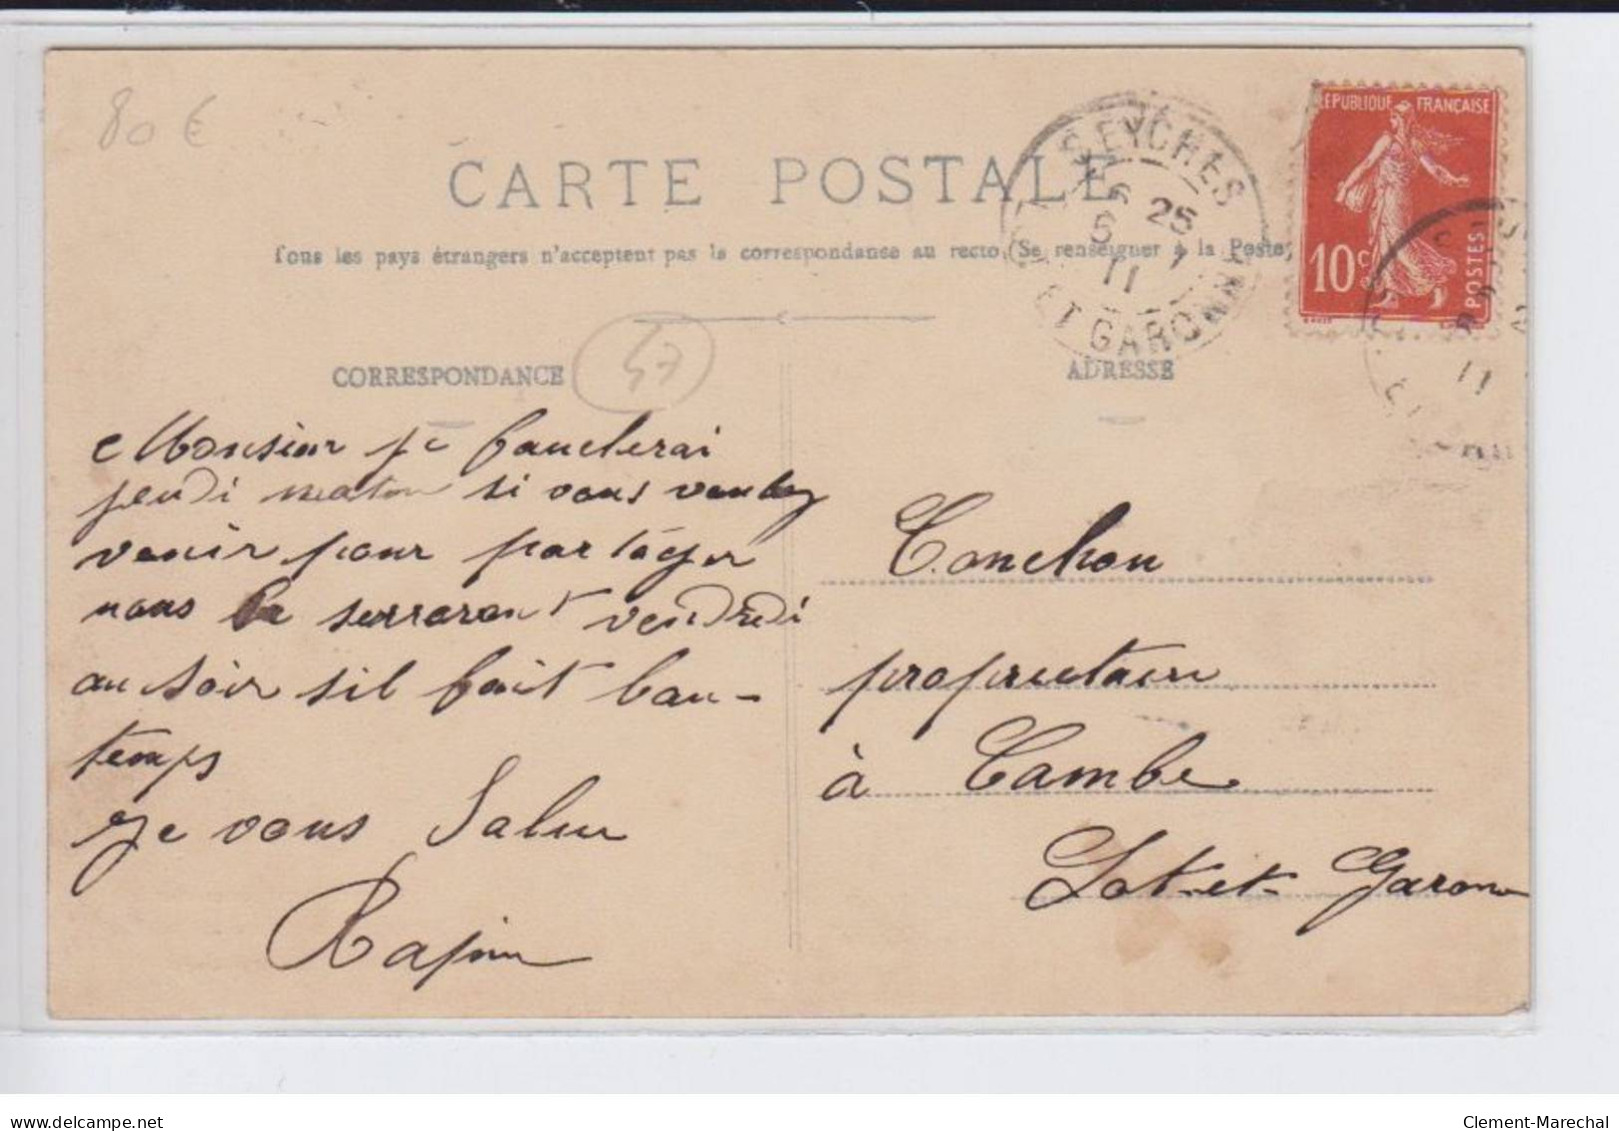 80 €
CARTE POSTALE
Tous les pays étrangers n'acceptent pas la correspondance au recto (Se renseigner à la Poste)
SEYCHES
6 25
5 7
11
ET GARONNE
REPUBLIQUE FRANÇAISE
10 c
POSTES
11
CORRESPONDANCE
47
ADRESSE
Monsieur je faucherai
jeudi maton si vous voulez
venir pour partager
nous le serreront vendredi
au soir sil fait bau-
temps
Je vous Salue
Rapin
Conchon
propriétaire
à Cambe
Lot-et-Garonne
delcampe.net
Clement-Marechal